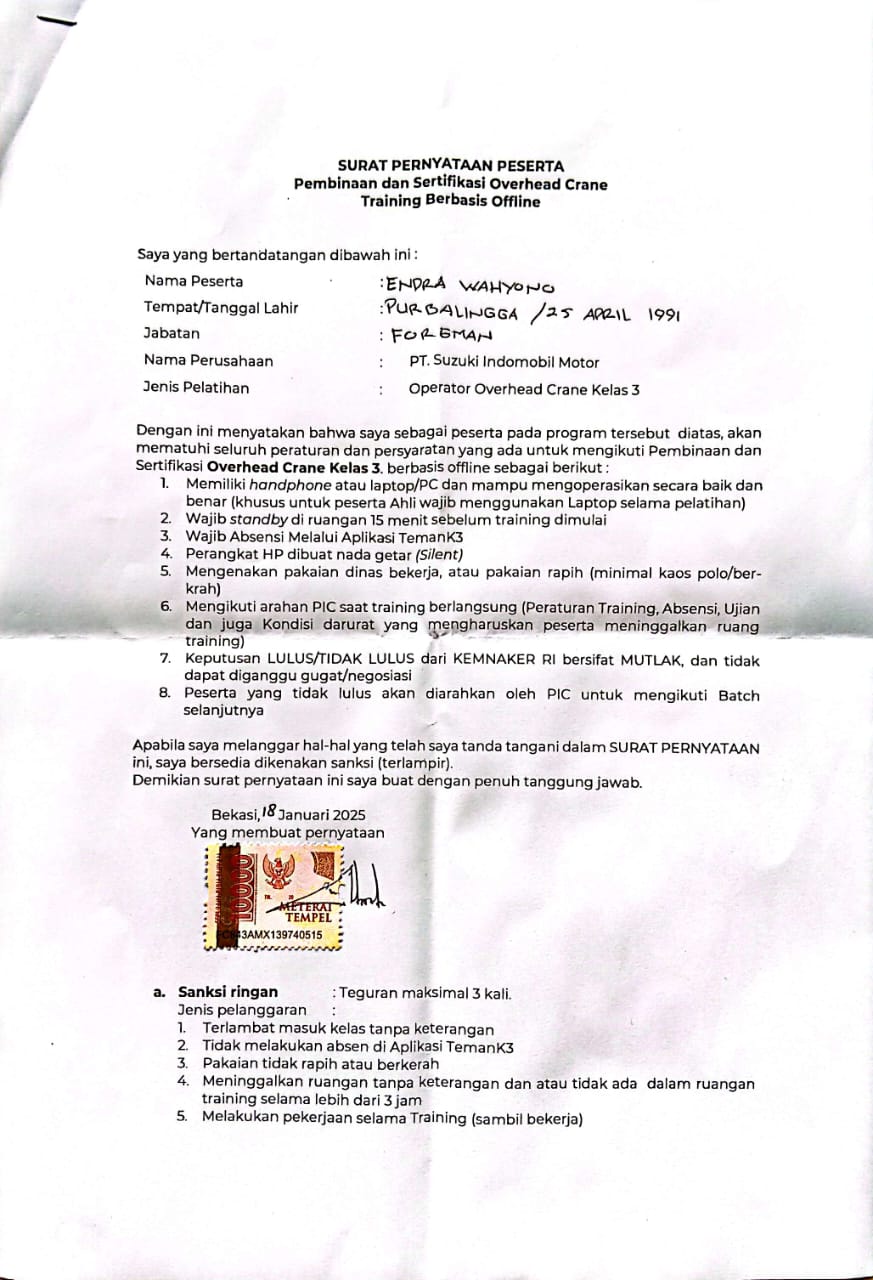 SURAT PERNYATAAN PESERTA
Pembinaan dan Sertifikasi Overhead Crane
Training Berbasis Offline
Saya yang bertandatangan dibawah ini :
Nama Peserta : ENDRA WAHYONO
Tempat/Tanggal Lahir : PURBALINGGA / 25 APRIL 1991
Jabatan : FOREMAN
Nama Perusahaan : PT. Suzuki Indomobil Motor
Jenis Pelatihan : Operator Overhead Crane Kelas 3
Dengan ini menyatakan bahwa saya sebagai peserta pada program tersebut diatas, akan
mematuhi seluruh peraturan dan persyaratan yang ada untuk mengikuti Pembinaan dan
Sertifikasi Overhead Crane Kelas 3. berbasis offline sebagai berikut :
1. Memiliki handphone atau laptop/PC dan mampu mengoperasikan secara baik dan
benar (khusus untuk peserta Ahli wajib menggunakan Laptop selama pelatihan)
2. Wajib standby di ruangan 15 menit sebelum training dimulai
3. Wajib Absensi Melalui Aplikasi TemanK3
4. Perangkat HP dibuat nada getar (Silent)
5. Mengenakan pakaian dinas bekerja, atau pakaian rapih (minimal kaos polo/ber-
krah)
6. Mengikuti arahan PIC saat training berlangsung (Peraturan Training, Absensi, Ujian
dan juga Kondisi darurat yang mengharuskan peserta meninggalkan ruang
training)
7. Keputusan LULUS/TIDAK LULUS dari KEMNAKER RI bersifat MUTLAK, dan tidak
dapat diganggu gugat/negosiasi
8. Peserta yang tidak lulus akan diarahkan oleh PIC untuk mengikuti Batch
selanjutnya
Apabila saya melanggar hal-hal yang telah saya tanda tangani dalam SURAT PERNYATAAN
ini, saya bersedia dikenakan sanksi (terlampir).
Demikian surat pernyataan ini saya buat dengan penuh tanggung jawab.
Bekasi, 18 Januari 2025
Yang membuat pernyataan
10000
METERAI
TEMPEL
43AMX139740515
a. Sanksi ringan : Teguran maksimal 3 kali.
Jenis pelanggaran :
1. Terlambat masuk kelas tanpa keterangan
2. Tidak melakukan absen di Aplikasi TemanK3
3. Pakaian tidak rapih atau berkerah
4. Meninggalkan ruangan tanpa keterangan dan atau tidak ada dalam ruangan
training selama lebih dari 3 jam
5. Melakukan pekerjaan selama Training (sambil bekerja)